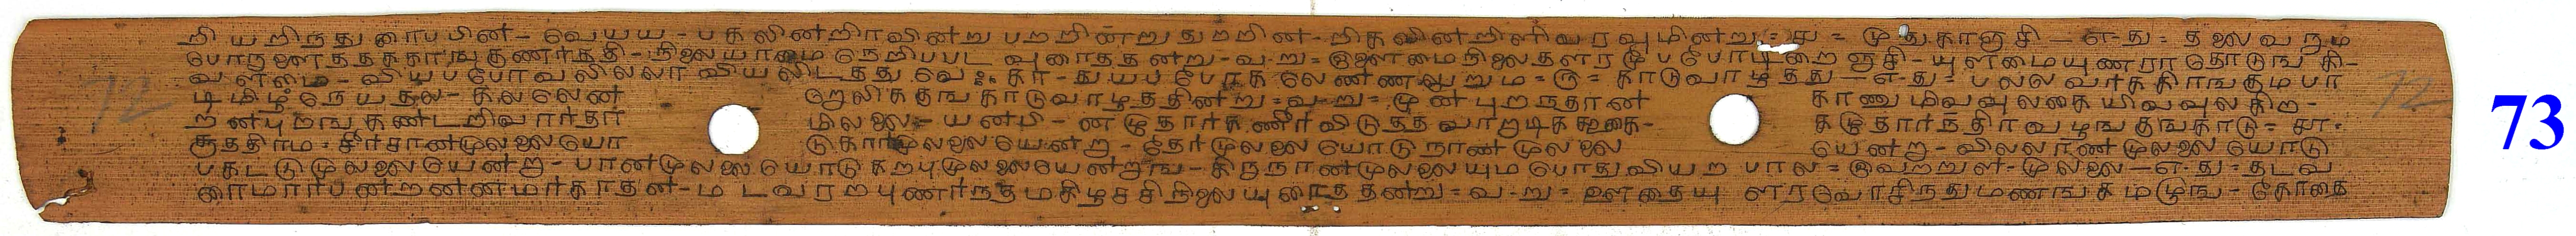 றியறிநதுரைப்பின்- வேயய - பகலின்றிரவின்று பற்றின்றுதுற்றின- றிகலின்றிளிவரவுமின்று = ௪ = முதுகாஞ்சி — எ-து = தலைவரும
பொருளைத்தக்காஙகுணர்ததி - நிலையாமை நெறிபபட வுரைத்தன்று - வ-று = இளமைநிலைதளரமூப்போடிறைஞ்சி - யுளமையுணராதொடுஙகி-
வளமை - வியப்போவலில்லா வியலிடத்து வெஃகா - துயபபோக வேண்ணலுறும = ரு = காடுவாழத்து — எ-து = பலலவர்க்கிரஙகுமபா
டிமிழ் நெயதல- கலலென
றொலிக்குஙகாடுவாழ்த்தின்று = வ-று = முன்புறநதான்
காணுமிவ்வுலகை யிவ்வுலகிற-
றன்புறங் கண்டறிவார்தா
மிலலை - யன்பி - னழுதார்கணீர்விடுத்தவாறடிக்ககூகை-
கழுதார்ந்திரவழஙகுஙகாடு = ௬ -
குத்திரம - சீர்சான்முலலையோ
டுகார்முலலையென்று - தேர்முலலையோடுநாண்முலலை
யென்று - விலலாண்முலலையோடு
பகட்டுமுலலையென்று - பான்முலலையோடுகற்புமுலலையென்றுங - கிருநான்முலலையும் பொதுவியற பால = இவற்றுள்- முலலை — எ-து = தடவ
ரைமார்பன்றன்னமர்காதன்- மடவரறபுணர்ந்தமகிழ்ச்சிநிலையுரைத்தன்று = வ-று = ஊதையு ளரவொசிந்துமணஙகமழுங - கோதை
73
72
72